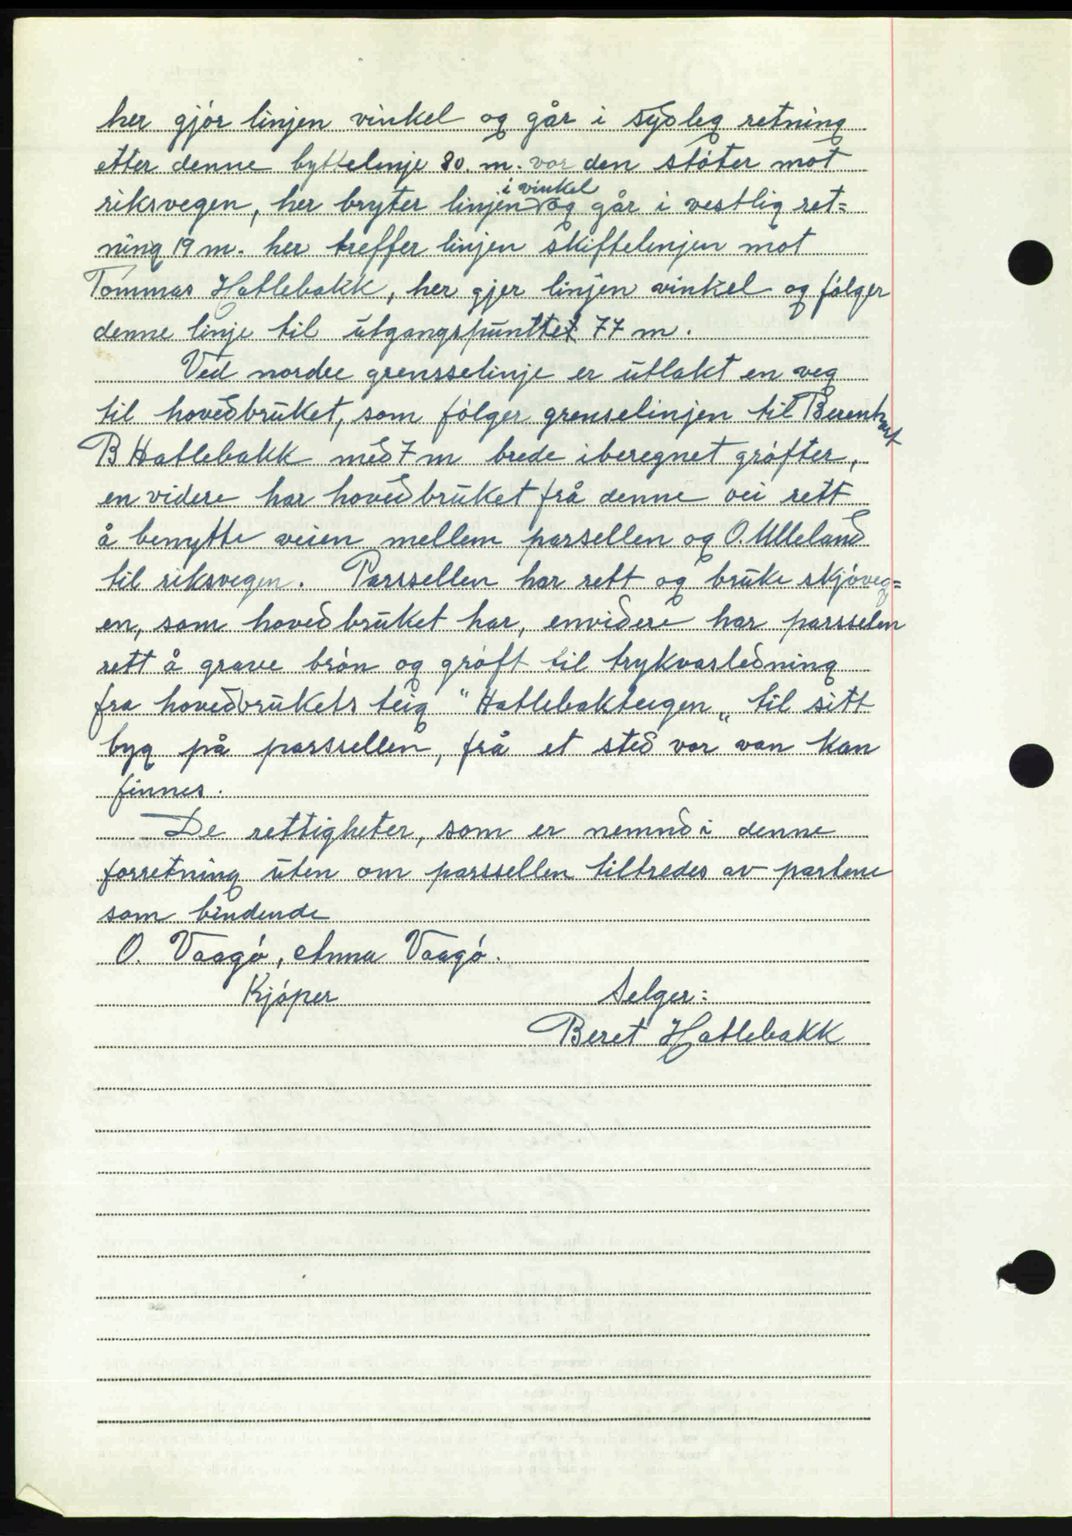 her gjór linjen vinkel og går i sydleg retning
etter denne byttelinje 80. m. vor den stóter mot
riksvegen, her bryter linjen i vinkel og går i vestlig ret=
ning 19 m. her treffer linjen skiftelinjen mot
Tommas Hatlebakk, her gjer linjen vinkel og fólger
denne linje til utgangspunttet 77 m.
Ved nordre grensselinje er utlakt en veg
til hovedbruket, som fólger grenselinjen til Berenhart
B Hatlebakk med 7 m brede iberegnet grófter,
en videre har hovedbruket frå denne vei rett
å benytte veien mellem parsellen og O. Ulleland
til riksvegen. Parssellen har rett og bruke skjóveg=
en, som hovedbruket har, envidere har parsselen
rett å grave brón og gróft til trykvasledning
fra hovedbrukets teig "Hatlebakteigen„ til sitt
byg på parssellen, frå et sted vor van kan
finnes.
De rettigheter, som er nemnd i denne
forretning uten om parssellen tiltredes av partene
som bindende
O. Vaagó, Anna Vaagó.
Kjóper Selger:
Beret Hatlebakk